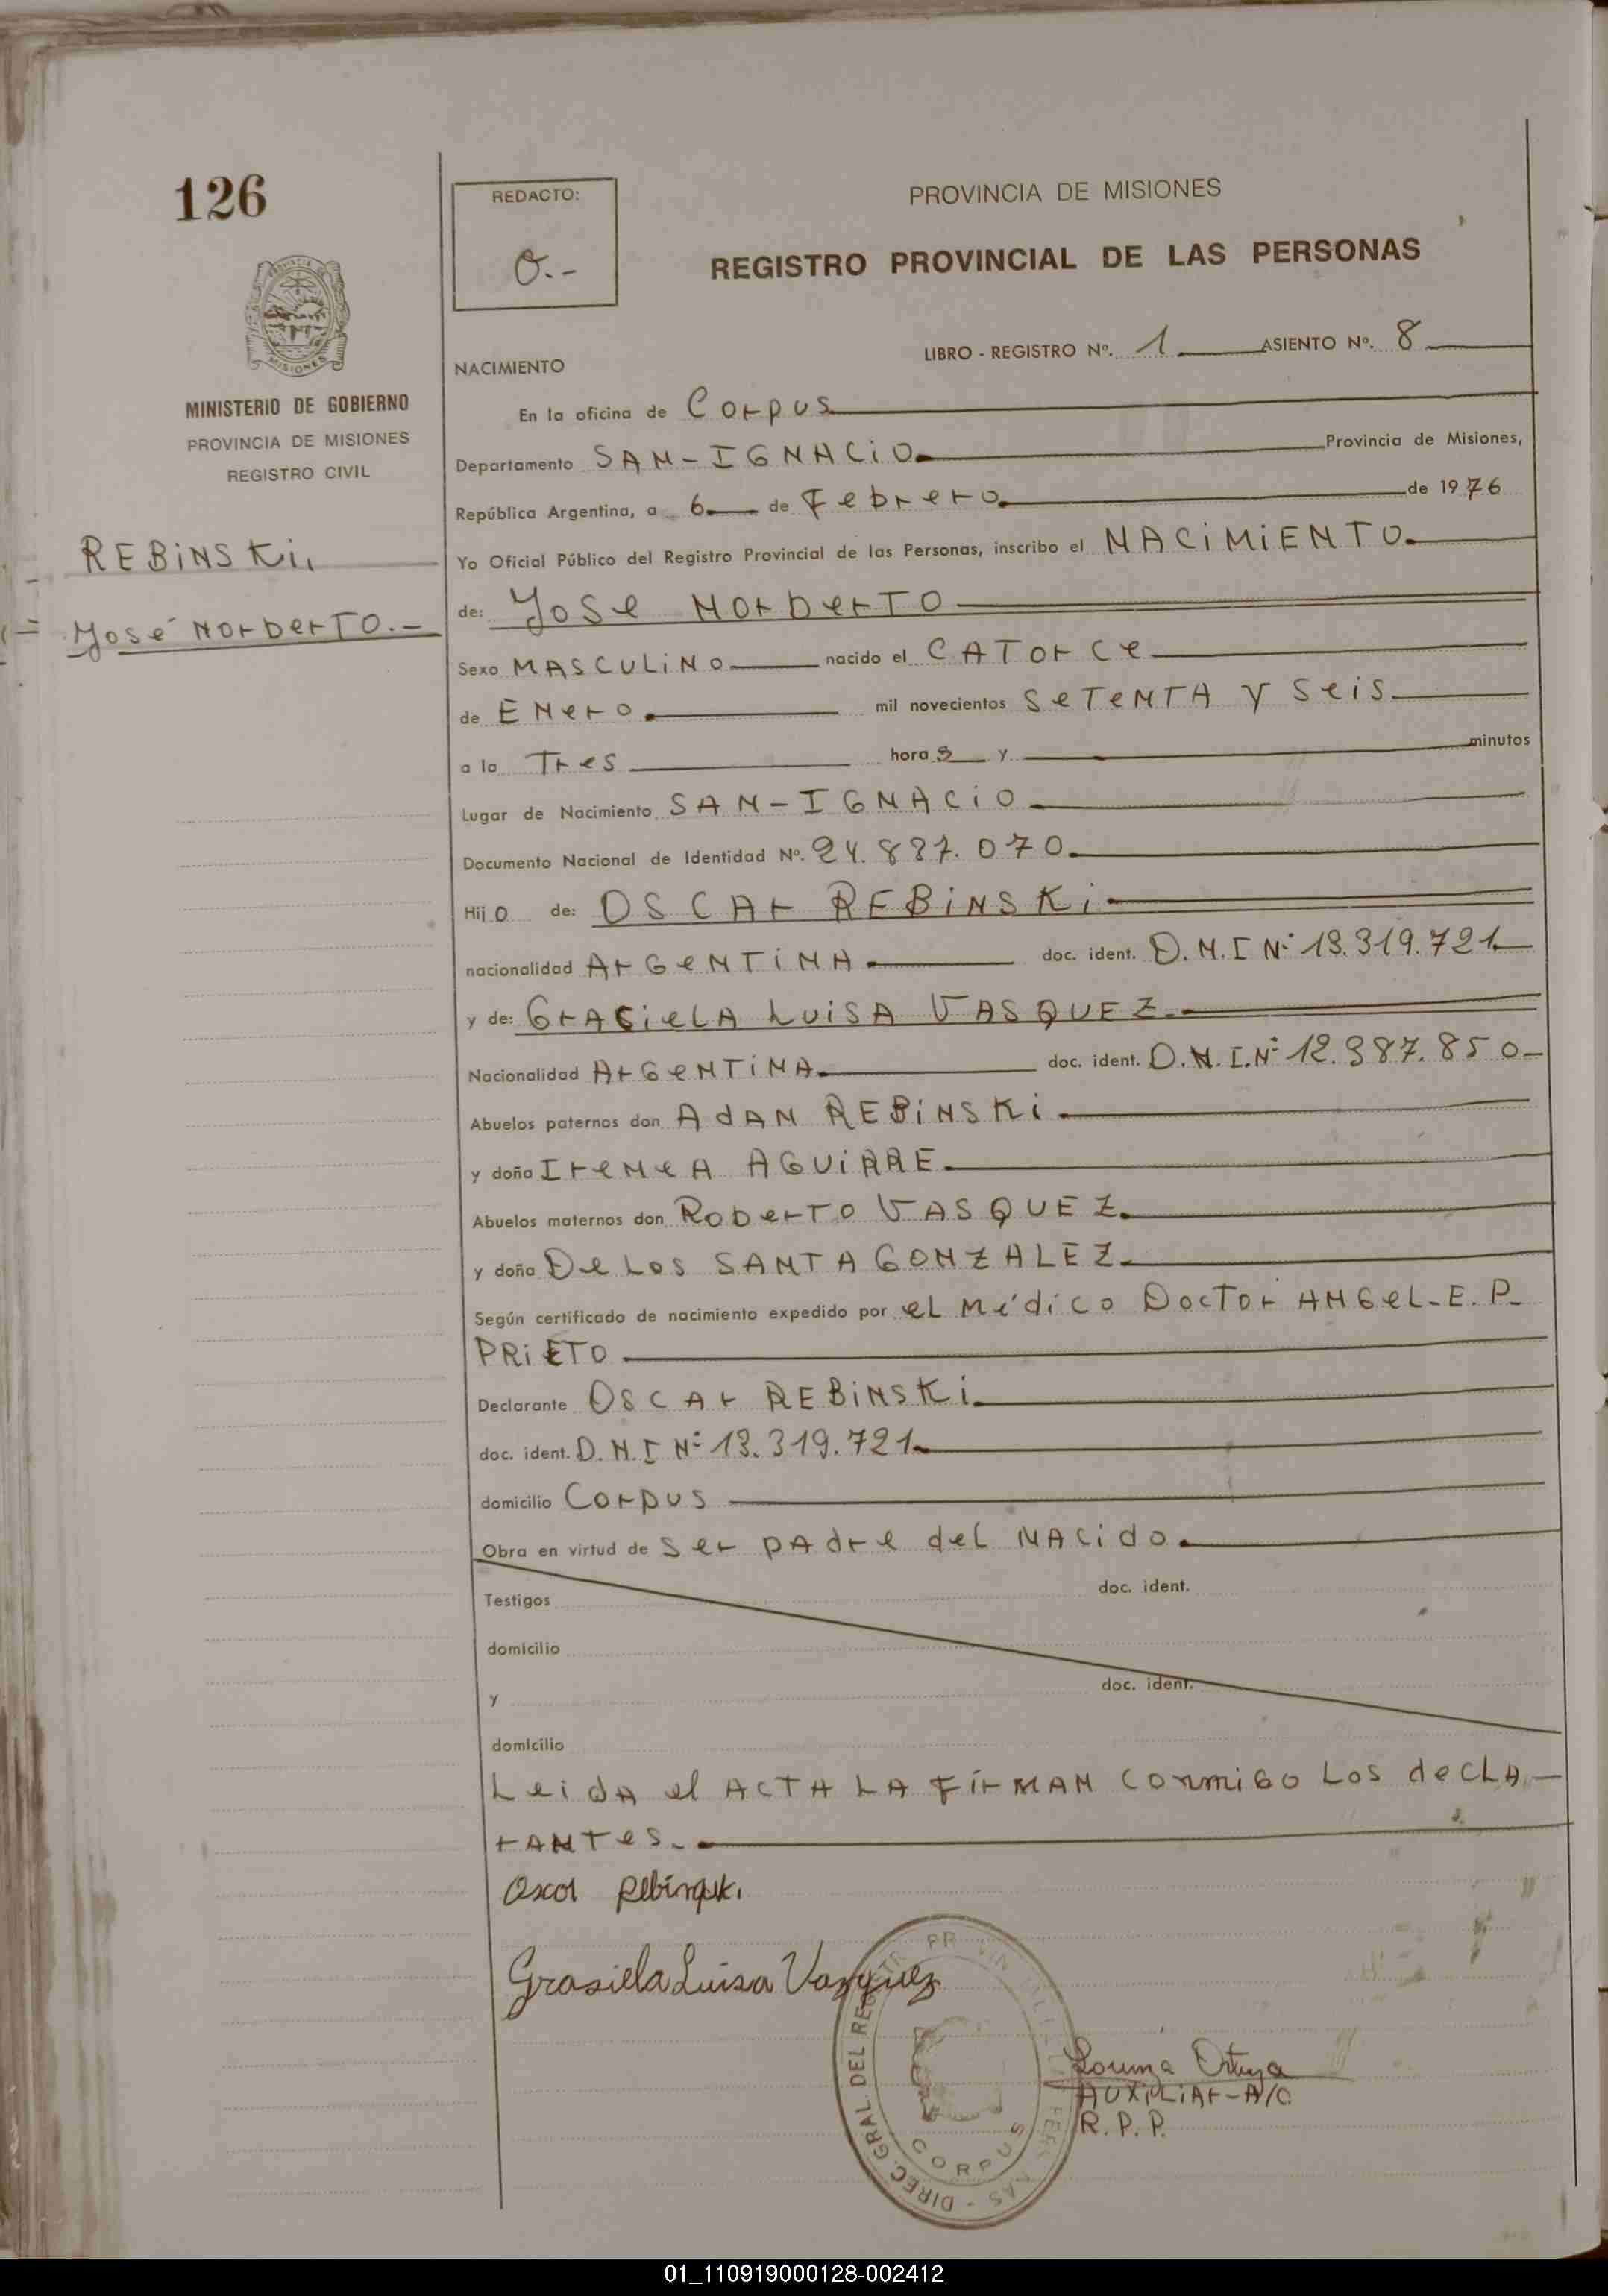 126
REDACTO:
O.-
PROVINCIA DE MISIONES
REGISTRO PROVINCIAL DE LAS PERSONAS
LIBRO - REGISTRO Nº. 1 ASIENTO Nº. 8
NACIMIENTO
PROVINCIA DE MISIONES
MINISTERIO DE GOBIERNO
PROVINCIA DE MISIONES
REGISTRO CIVIL
REBINSKI,
José Norberto.-
En la oficina de Corpus
Departamento SAN-IGNACIO. Provincia de Misiones,
República Argentina, a 6 de Febrero de 1976
Yo Oficial Público del Registro Provincial de las Personas, inscribo el NACIMIENTO.
de: Jose Norberto
Sexo MASCULINO nacido el CATOrce
de Enero. mil novecientos SeTeNTA Y Seis
a la Tres horas y minutos
Lugar de Nacimiento SAN-IGNACIO
Documento Nacional de Identidad Nº. 24.887.070
Hijo de: OSCAr REBINSKI
nacionalidad ArGeNTINA. doc. ident. D.N.I Nº 13.319.721
y de: GrACielA LuiSA VASQUEZ.
Nacionalidad ArGeNTINA. doc. ident. D.N.I.Nº 12.387.850
Abuelos paternos don AdAN REBINSKI
y doña IreNeA AGUIRRE.
Abuelos maternos don RoberTO VASQUEZ.
y doña De Los SANTA GONZALEZ.
Según certificado de nacimiento expedido por el Médico Doctor ANGel-E.P.
PRIETO
Declarante OSCAr REBINSKI.
doc. ident. D.N.I Nº 13.319.721.
domicilio Corpus
Obra en virtud de Ser pAdre del NACido.
Testigos doc. ident.
domicilio
y doc. ident.
domicilio
LeidA el ACTA LA FirMAN conmiGO Los decLA-
rANTes.-
Oscar Rebinski
Grasiela Luisa Vasquez
DIREC. GRAL. DEL REG
CORPUS
AUXILIAr-A/C
R.P.P.
01_110919000128-002412